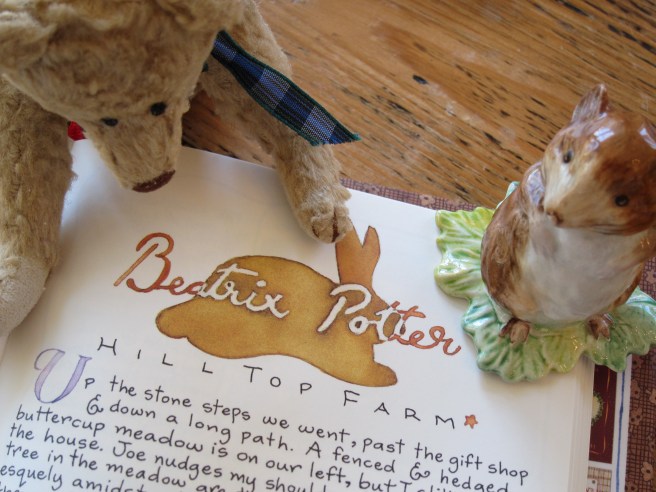 Beatrix Potter
HILL TOP FARM
UP the stone steps we went, past the gift shop
& down a long path. A fenced & hedged
buttercup meadow is on our left, but
the house. Joe nudges my
tree in the meadow are
esquely amidst